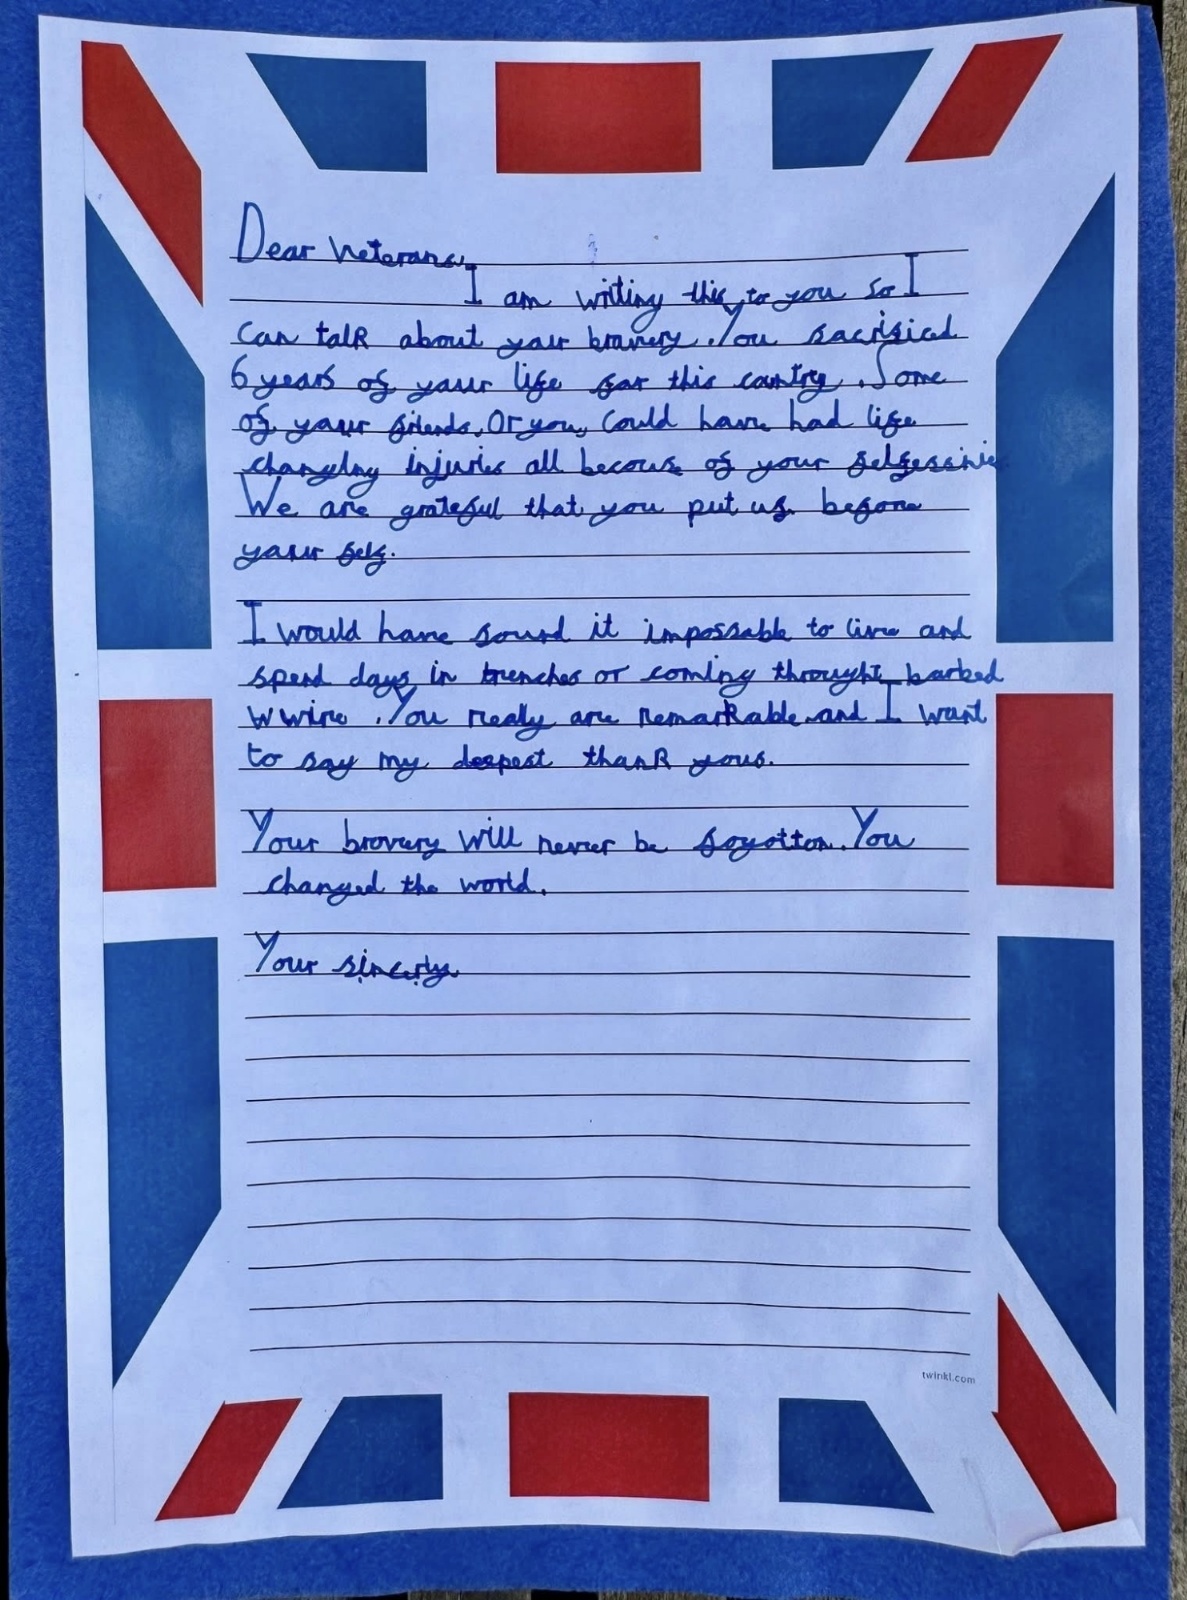 Dear Veterans,
I am writing this to you so I
can talk about your bravery. You sacrisicd
6 years of your life for this country. Some
of your friends, Or you, could have had life
changing injuries all becouse of your
We are grateful that you put us before
your self.
I would have found it impossable to live and
spend days in trenches or coming throught barbed
wwire. You really are remarkable and I want
to say my deepest thank yous.
Your bravery will never be fogotton. You
changed the world.
Your sincerly
twinkl.com